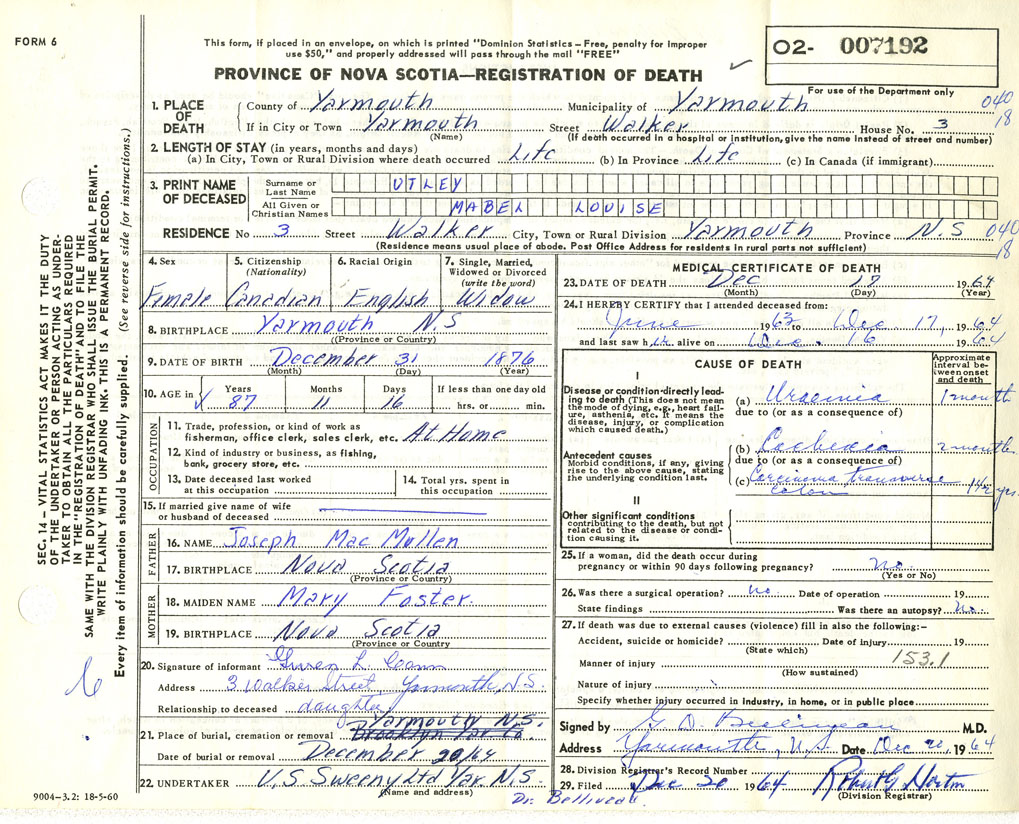 FORM 6
This form, if placed in an envelope, on which is printed "Dominion Statistics – Free, penalty for improper
use $50," and properly addressed will pass through the mail "FREE"
O2- 007192
For use of the Department only
PROVINCE OF NOVA SCOTIA—REGISTRATION OF DEATH
040
18
1. PLACE OF DEATH County of Yarmouth Municipality of Yarmouth
If in City or Town Yarmouth Street Walker House No. 3
(Name) (If death occurred in a hospital or institution, give the name instead of street and number)
2. LENGTH OF STAY (in years, months and days)
(a) In City, Town or Rural Division where death occurred Life (b) In Province Life (c) In Canada (if immigrant)
3. PRINT NAME OF DECEASED
Surname or Last Name UTLEY
All Given or Christian Names MABEL LOUISE
RESIDENCE No 3 Street Walker City, Town or Rural Division Yarmouth Province N.S
040
18
(Residence means usual place of abode. Post Office Address for residents in rural parts not sufficient)
4. Sex Female
5. Citizenship (Nationality) Canadian
6. Racial Origin English
7. Single, Married, Widowed or Divorced (write the word) Widow
8. BIRTHPLACE Yarmouth N.S
(Province or Country)
9. DATE OF BIRTH December 31 1876
(Month) (Day) (Year)
10. AGE in Years 87 Months 11 Days 16 If less than one day old hrs. or min.
OCCUPATION
11. Trade, profession, or kind of work as
fisherman, office clerk, sales clerk, etc. At Home
12. Kind of industry or business, as fishing,
bank, grocery store, etc.
13. Date deceased last worked
at this occupation
14. Total yrs. spent in
this occupation
15. If married give name of wife
or husband of deceased
FATHER
16. NAME Joseph Mac Mullen
17. BIRTHPLACE Nova Scotia
(Province or Country)
MOTHER
18. MAIDEN NAME Mary Foster.
19. BIRTHPLACE Nova Scotia
(Province or Country)
20. Signature of informant Gwen L.
Address 3 Walker Street Yarmouth, N.S.
Relationship to deceased daughter
Yarmouth N.S.
21. Place of burial, cremation or removal Brooklyn Yar Co.
Date of burial or removal December 20/64
22. UNDERTAKER V.S Sweeny Ltd Yar. N.S.
(Name and address)
Dr. Belliveau
MEDICAL CERTIFICATE OF DEATH
23. DATE OF DEATH Dec 17 1964
(Month) (Day) (Year)
24. I HEREBY CERTIFY that I attended deceased from:
June 1963 to Dec 17, 1964
and last saw her alive on Dec. 16 1964
CAUSE OF DEATH
Approximate interval between onset and death
I
Disease or condition directly leading to death (This does not mean the mode of dying, e.g., heart failure, asthenia, etc. It means the disease, injury, or complication which caused death.)
(a) Uraemia 1 month
due to (or as a consequence of)
Antecedent causes
Morbid conditions, if any, giving rise to the above cause, stating the underlying condition last.
(b) Cachexia 2 month
due to (or as a consequence of)
(c) Carcinoma transverse colon 1½ yrs.
II
Other significant conditions
contributing to the death, but not related to the disease or condition causing it.
25. If a woman, did the death occur during
pregnancy or within 90 days following pregnancy? No.
(Yes or No)
26. Was there a surgical operation? No. Date of operation 19
State findings Was there an autopsy? No.
27. If death was due to external causes (violence) fill in also the following:–
Accident, suicide or homicide? Date of injury 19
(State which)
153.1
Manner of injury
(How sustained)
Nature of injury
Specify whether injury occurred in industry, in home, or in public place
Signed by G D Belliveau M.D.
Address Yarmouth, N.S Date Dec 20, 1964
28. Division Registrar's Record Number
29. Filed Dec 20 1964 Robert G Horton
(Division Registrar)
SEC. 14 – VITAL STATISTICS ACT MAKES IT THE DUTY
OF THE UNDERTAKER OR PERSON ACTING AS UNDER-
TAKER TO OBTAIN ALL THE PARTICULARS REQUIRED
IN THE "REGISTRATION OF DEATH" AND TO FILE THE
SAME WITH THE DIVISION REGISTRAR WHO SHALL ISSUE THE BURIAL PERMIT.
WRITE PLAINLY WITH UNFADING INK. THIS IS A PERMANENT RECORD.
Every item of information should be carefully supplied. (See reverse side for instructions.)
9004-3.2: 18-5-60